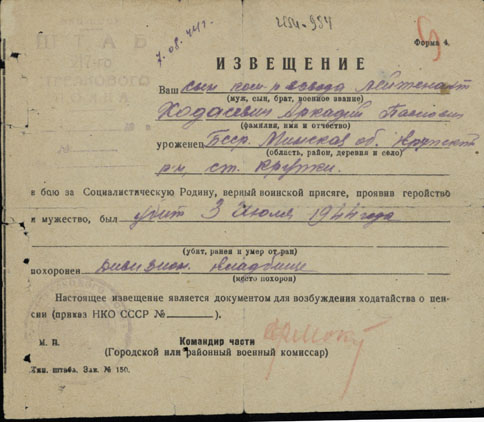 ШТАБ
7.08.44г.
2154-954
Форма 4.
ИЗВЕЩЕНИЕ
Ваш сын ком-р взвода лейтенант
(муж, сын, брат, военное звание)
Ходасевич Аркадий
(фамилия, имя и отчество)
уроженец БССР Минская об.
(область, район, деревня и село)
р-н, ст.
в бою за Социалистическую Родину, верный воинской присяге, проявив геройство
и мужество, был убит 3 июля 1944 года
(убит, ранен и умер от ран)
похоронен дивизион. кладбище
(место похорон)
Настоящее извещение является документом для возбуждения ходатайства о пен-
сии (приказ НКО СССР №).
М. П. Командир части
(Городской или районный военный комиссар)
Тип. штаба. Зак. № 150.